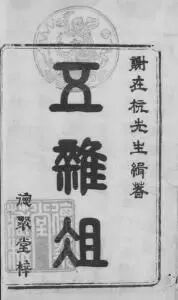 謝在杭先生緝著
五雜俎
德聚堂梓